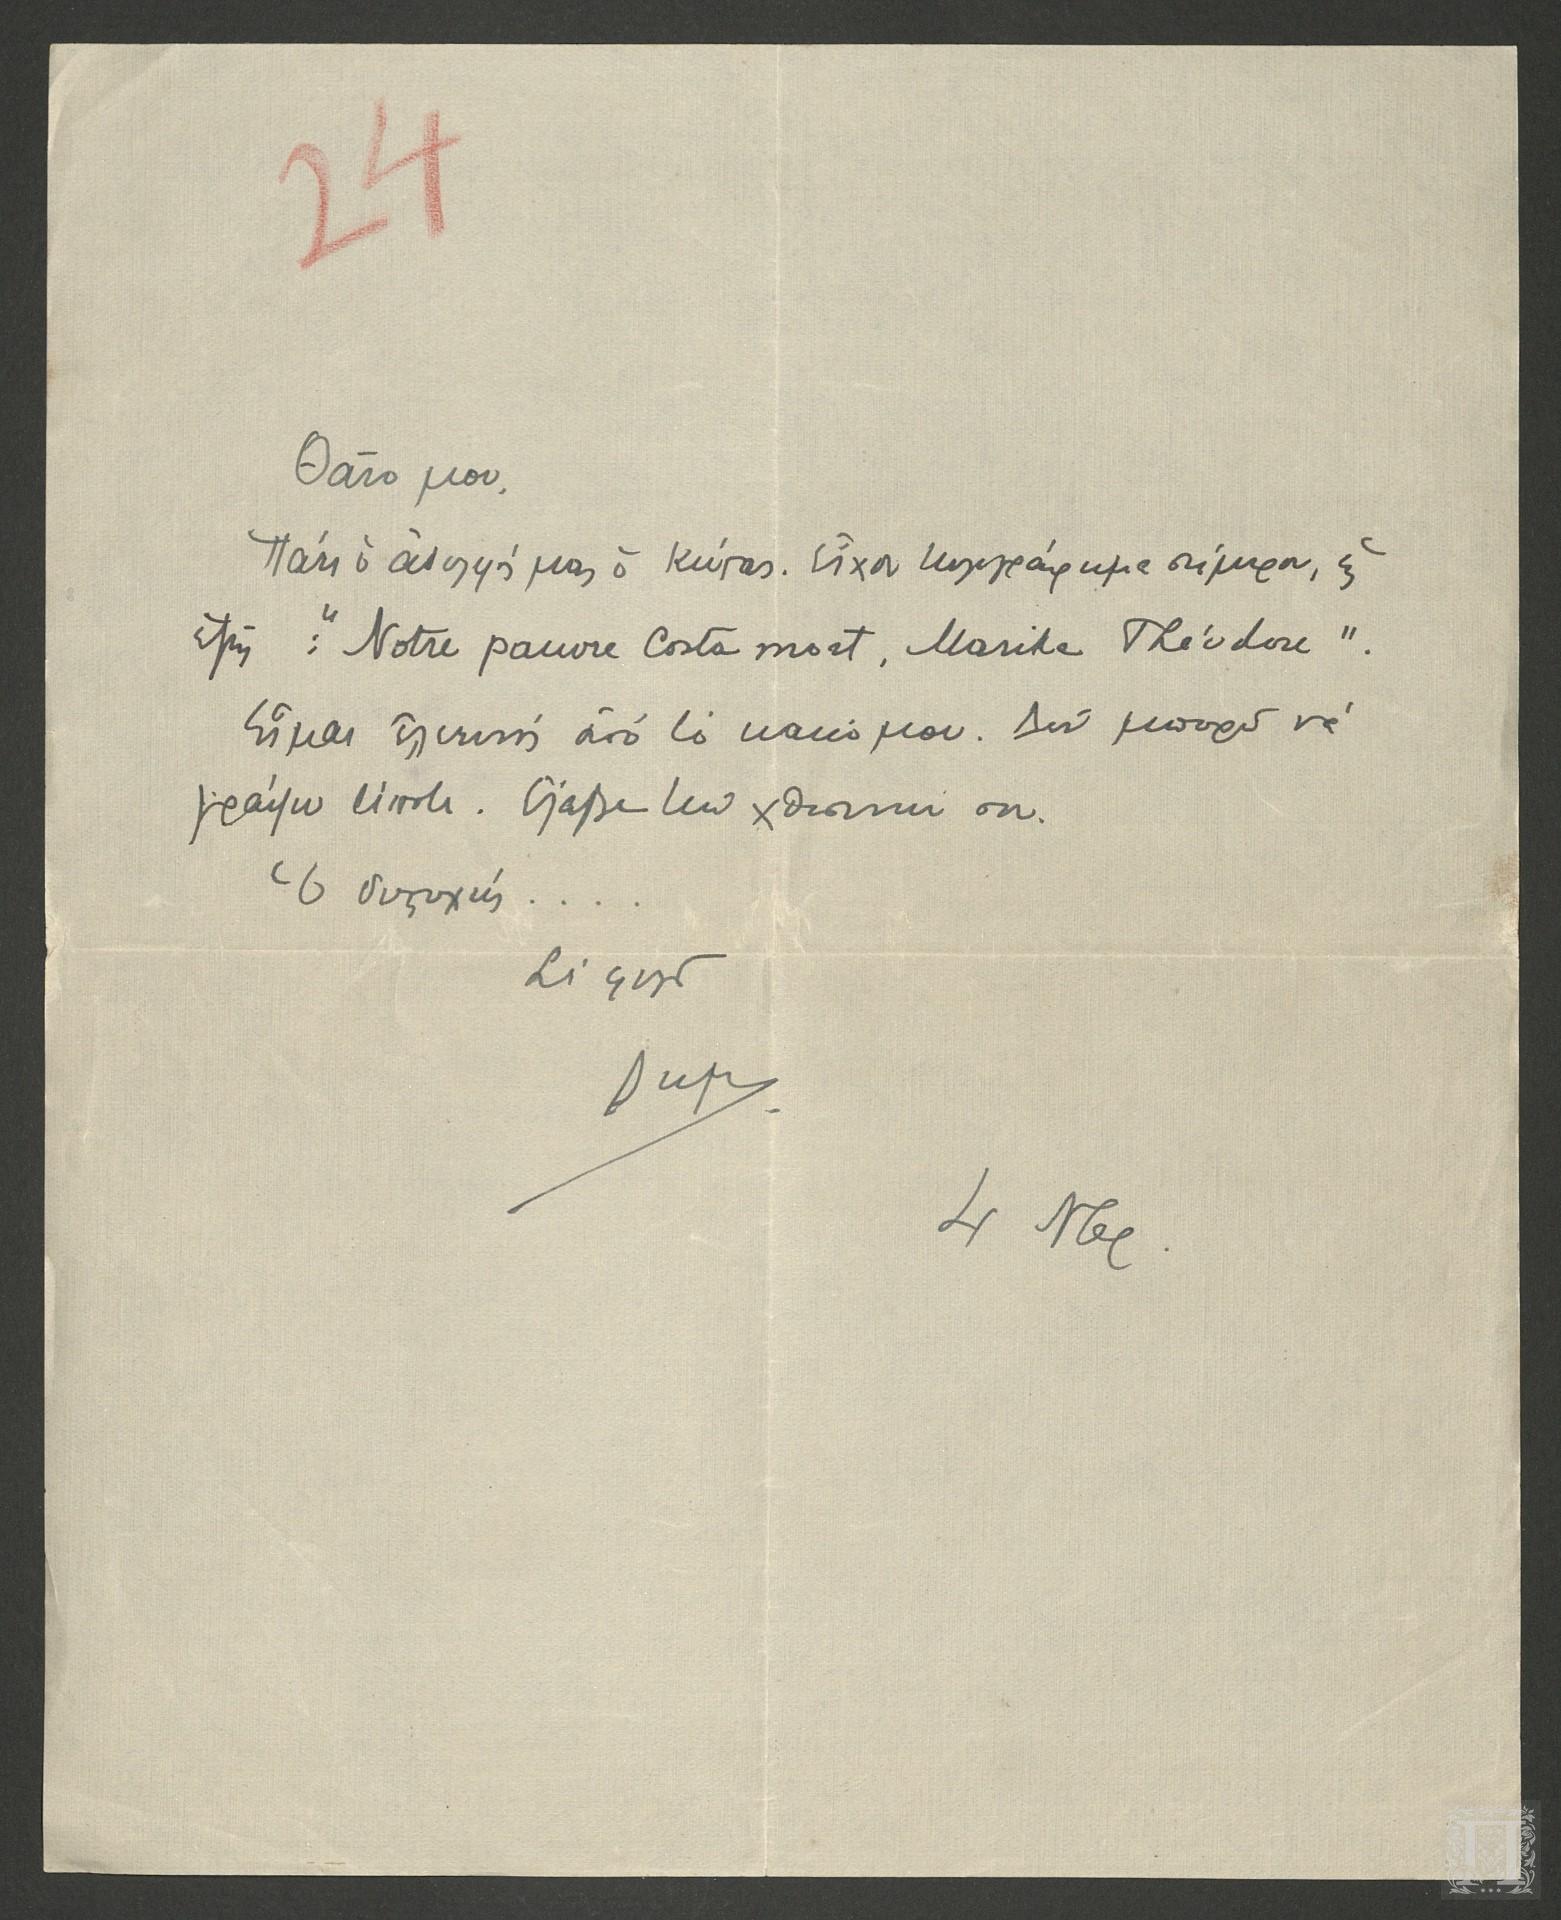 24
Θᾶνο μου,
Πάει ὁ ἀδερφός μας ὁ Κώστας. Εἶχα τηλεγράφημα σήμερα,
"Notre pauvre Costa mort, Marika Théodore".
Εἶμαι ἐλεεινός ἀπό τό κακό μου. Δέν μπορῶ νά
γράψω τίποτε. Ἔλαβα τήν χθεσινή σου.
Ὁ δυστυχής . . . .
Σέ φιλῶ
Δημ.
Νβρ.